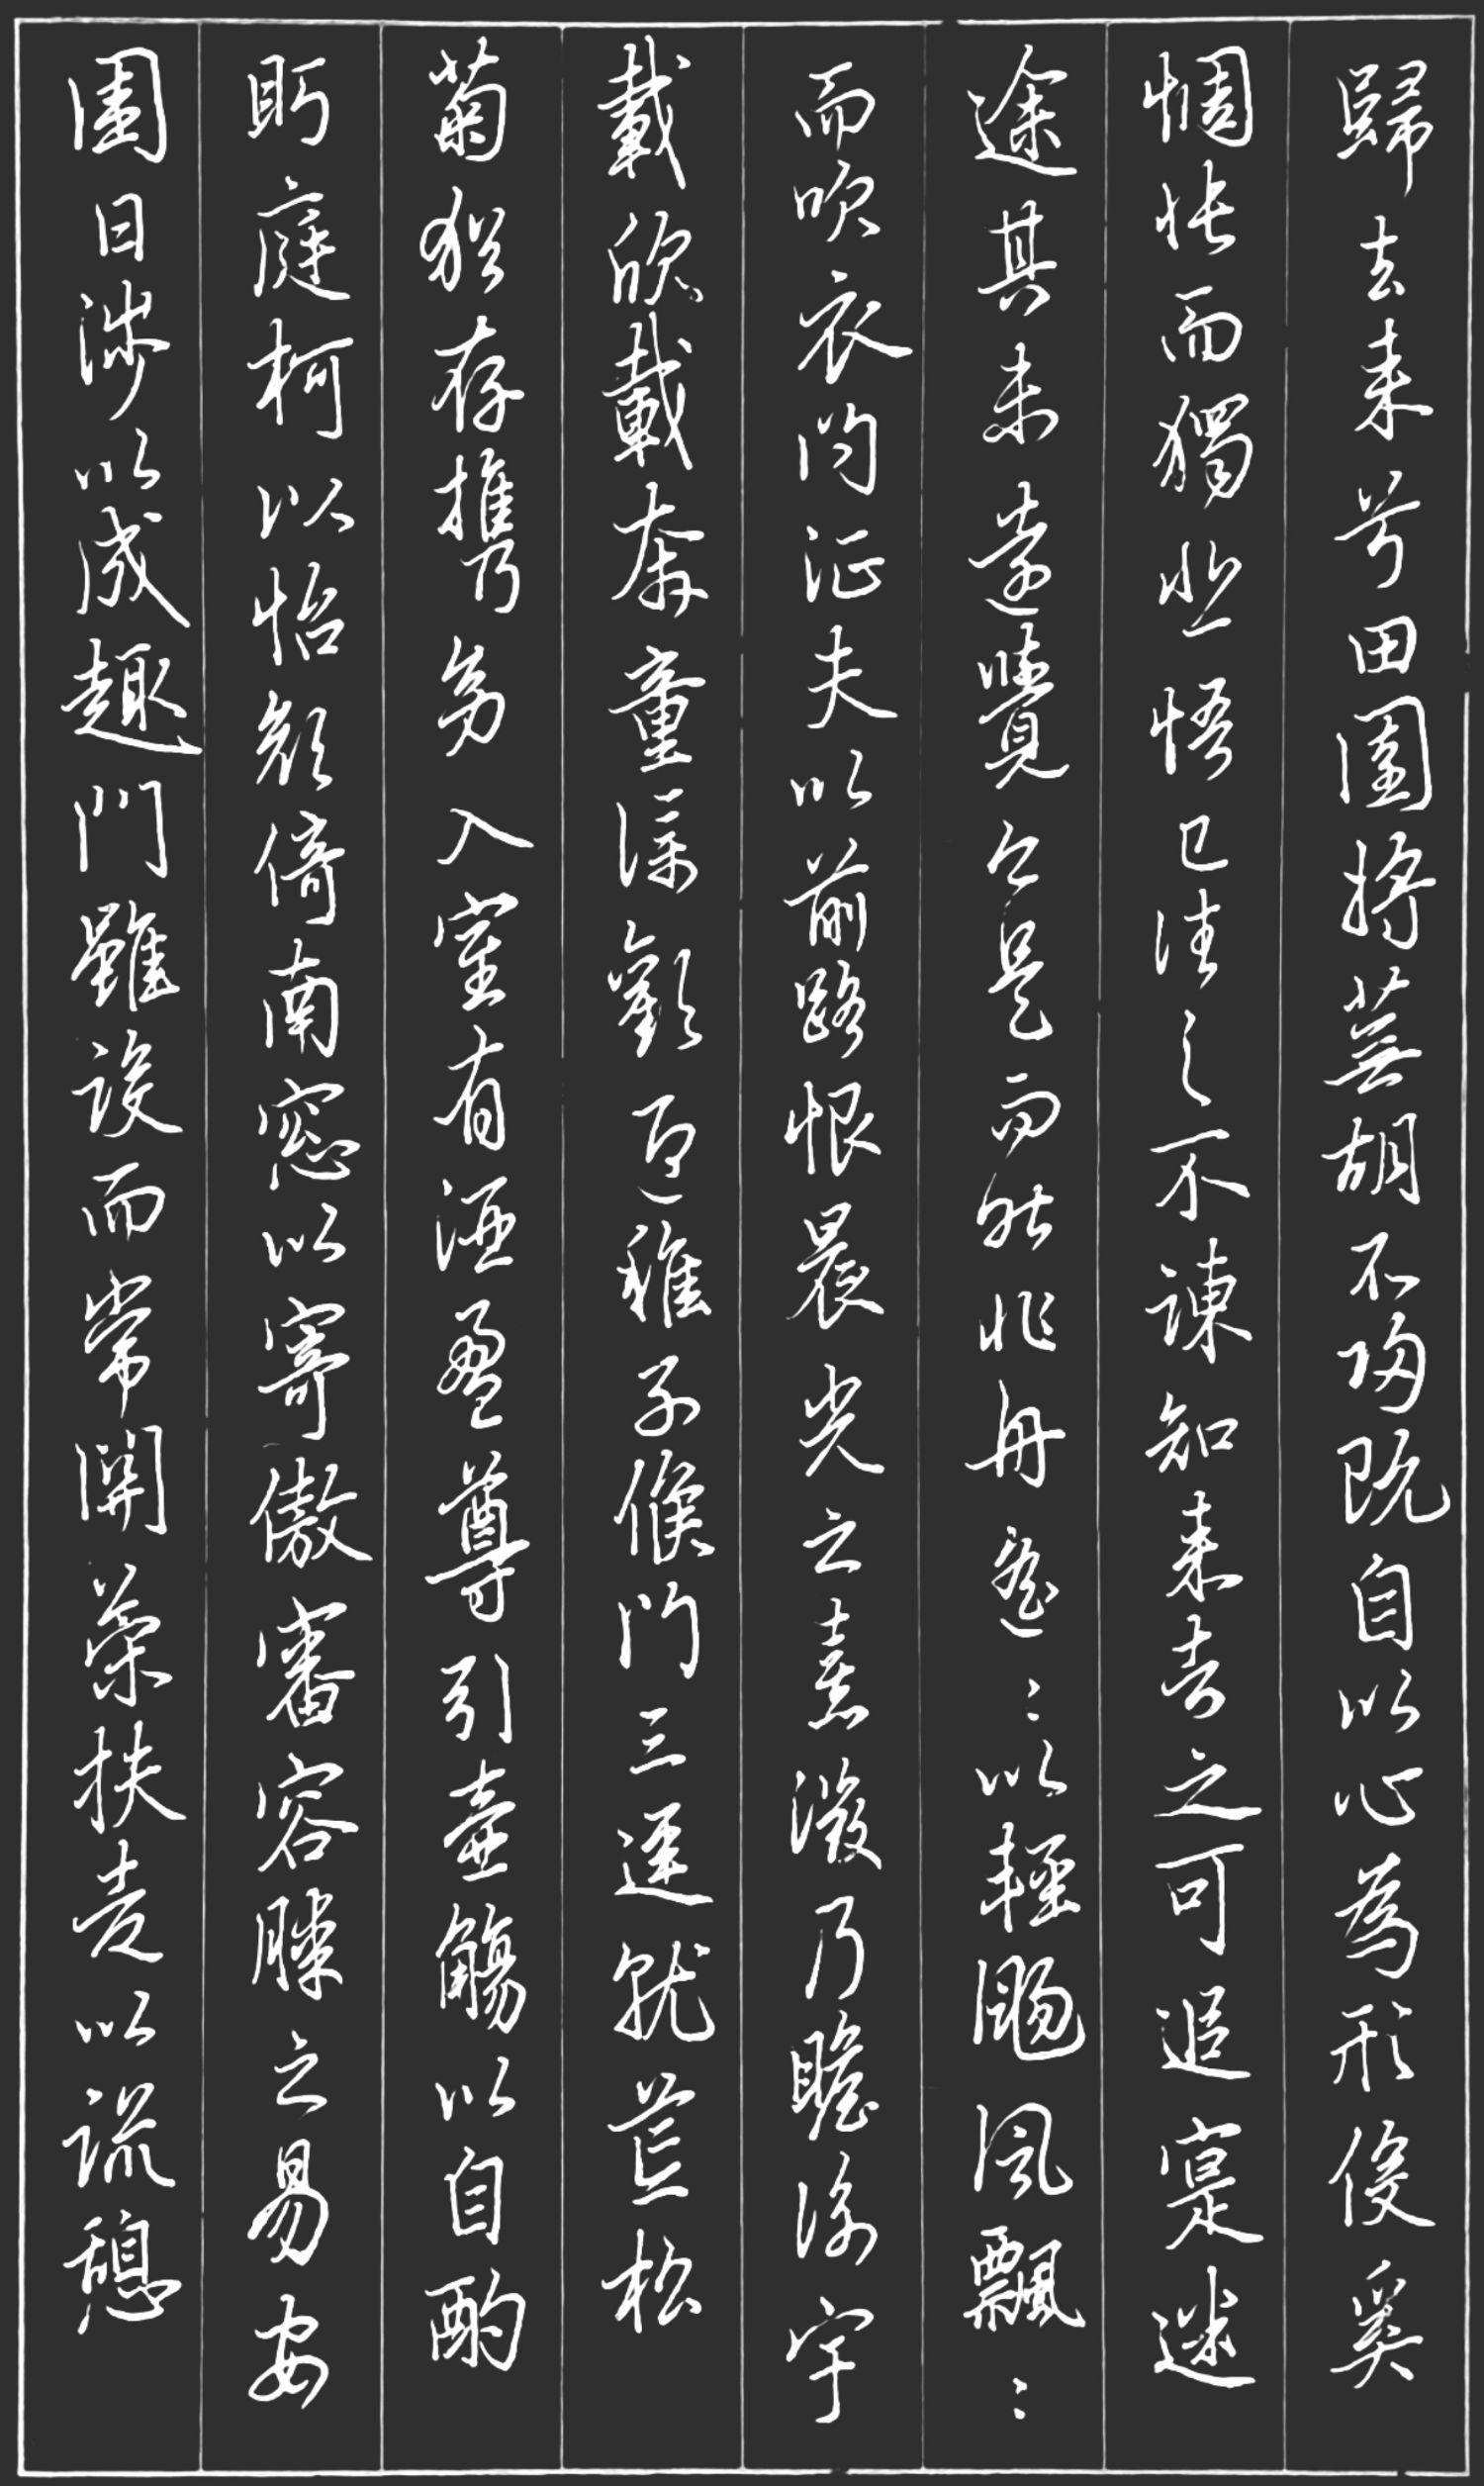 歸去来兮田園将蕪胡不歸既自以心為形役奚
惆悵而獨悲悟已往之不諫知来者之可追寔迷
途其未遠覺今是而昨非舟遥〻以輕颺風飄〻
而吹衣问征夫以前路恨晨光之熹微乃瞻衡宇
載欣載奔童僕歡迎稚子候门三逕就荒松
菊猶存攜幼入室有酒盈尊引壺觴以自酌
眄庭柯以怡顔倚南窓以寄傲審容膝之易安
園日涉以成趣門雖設而常開策扶老以流憩